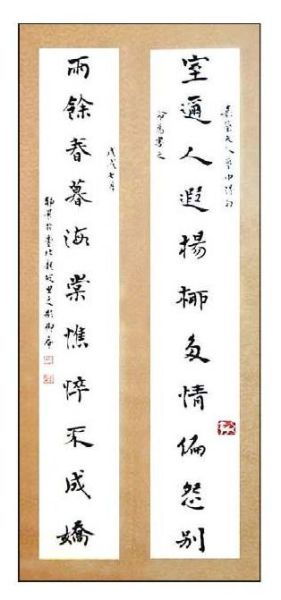 室邇人遐楊柳多情偏怨別
雨餘春暮海棠憔悴不成嬌
戊戌七月